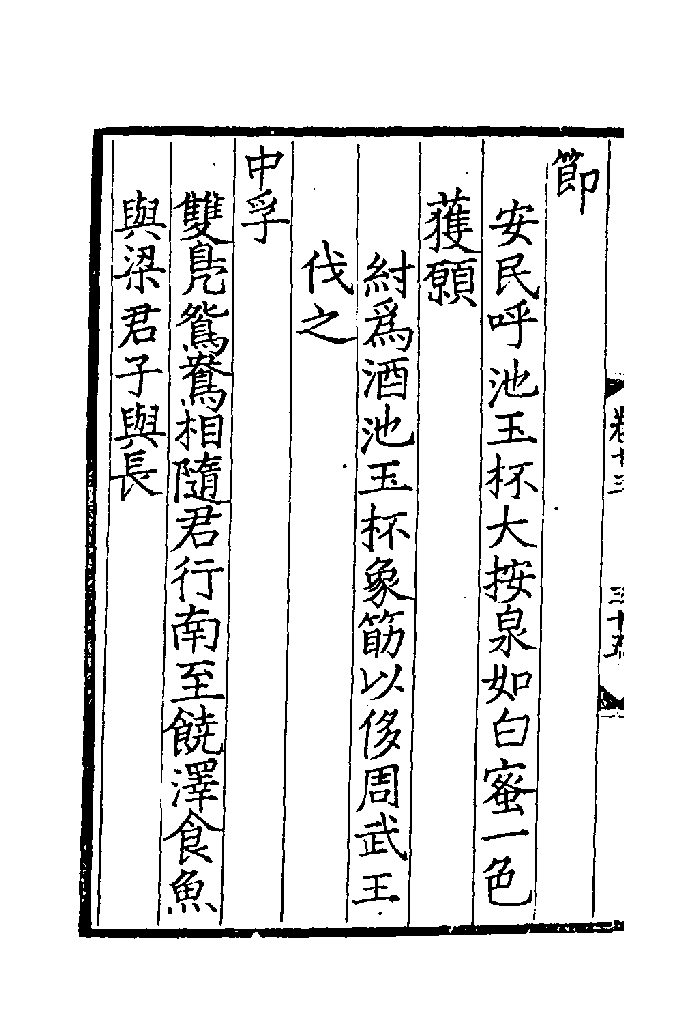 卷十三 三十五
節
安民呼池玉杯大按泉如白蜜一色
獲願
紂爲酒池玉杯象筯以侈周武王
伐之
中孚
雙鳧鴛鴦相隨君行南至饒澤食魚
與梁君子與長